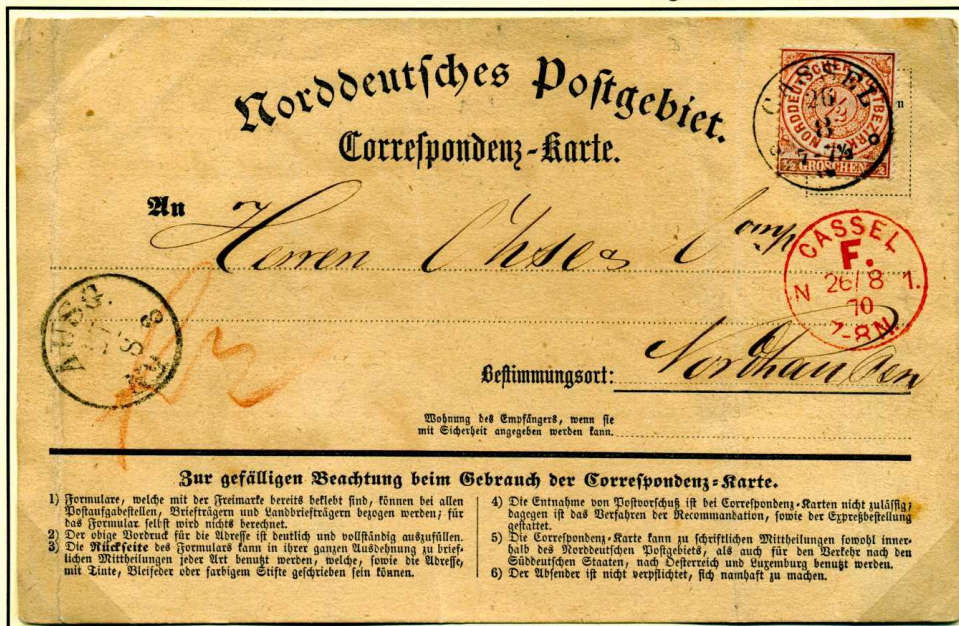 Norddeutsches Postgebiet.
Correspondenz-Karte.
NORDDEUTSCHER POSTBEZIRK
½
½ GROSCHEN ½
CASSEL
26
8
7-7½
An Herren Ohse & Comp
CASSEL
F.
N 26/8 1.
70
7-8N.
AUSG.
8
Bestimmungsort: Nordhausen
Wohnung des Empfängers, wenn sie
mit Sicherheit angegeben werden kann.
Zur gefälligen Beachtung beim Gebrauch der Correspondenz-Karte.
1) Formulare, welche mit der Freimarke bereits beklebt sind, können bei allen
Postaufgabestellen, Briefträgern und Landbriefträgern bezogen werden; für
das Formular selbst wird nichts berechnet.
2) Der obige Vordruck für die Adresse ist deutlich und vollständig auszufüllen.
3) Die Rückseite des Formulars kann in ihrer ganzen Ausdehnung zu brief-
lichen Mittheilungen jeder Art benutzt werden, welche, sowie die Adresse,
mit Tinte, Bleifeder oder farbigem Stifte geschrieben sein können.
4) Die Entnahme von Postvorschuß ist bei Correspondenz-Karten nicht zulässig;
dagegen ist das Verfahren der Recommandation, sowie der Expreßbestellung
gestattet.
5) Die Correspondenz-Karte kann zu schriftlichen Mittheilungen sowohl inner-
halb des Norddeutschen Postgebiets, als auch für den Verkehr nach den
Süddeutschen Staaten, nach Oesterreich und Luxemburg benutzt werden.
6) Der Absender ist nicht verpflichtet, sich namhaft zu machen.